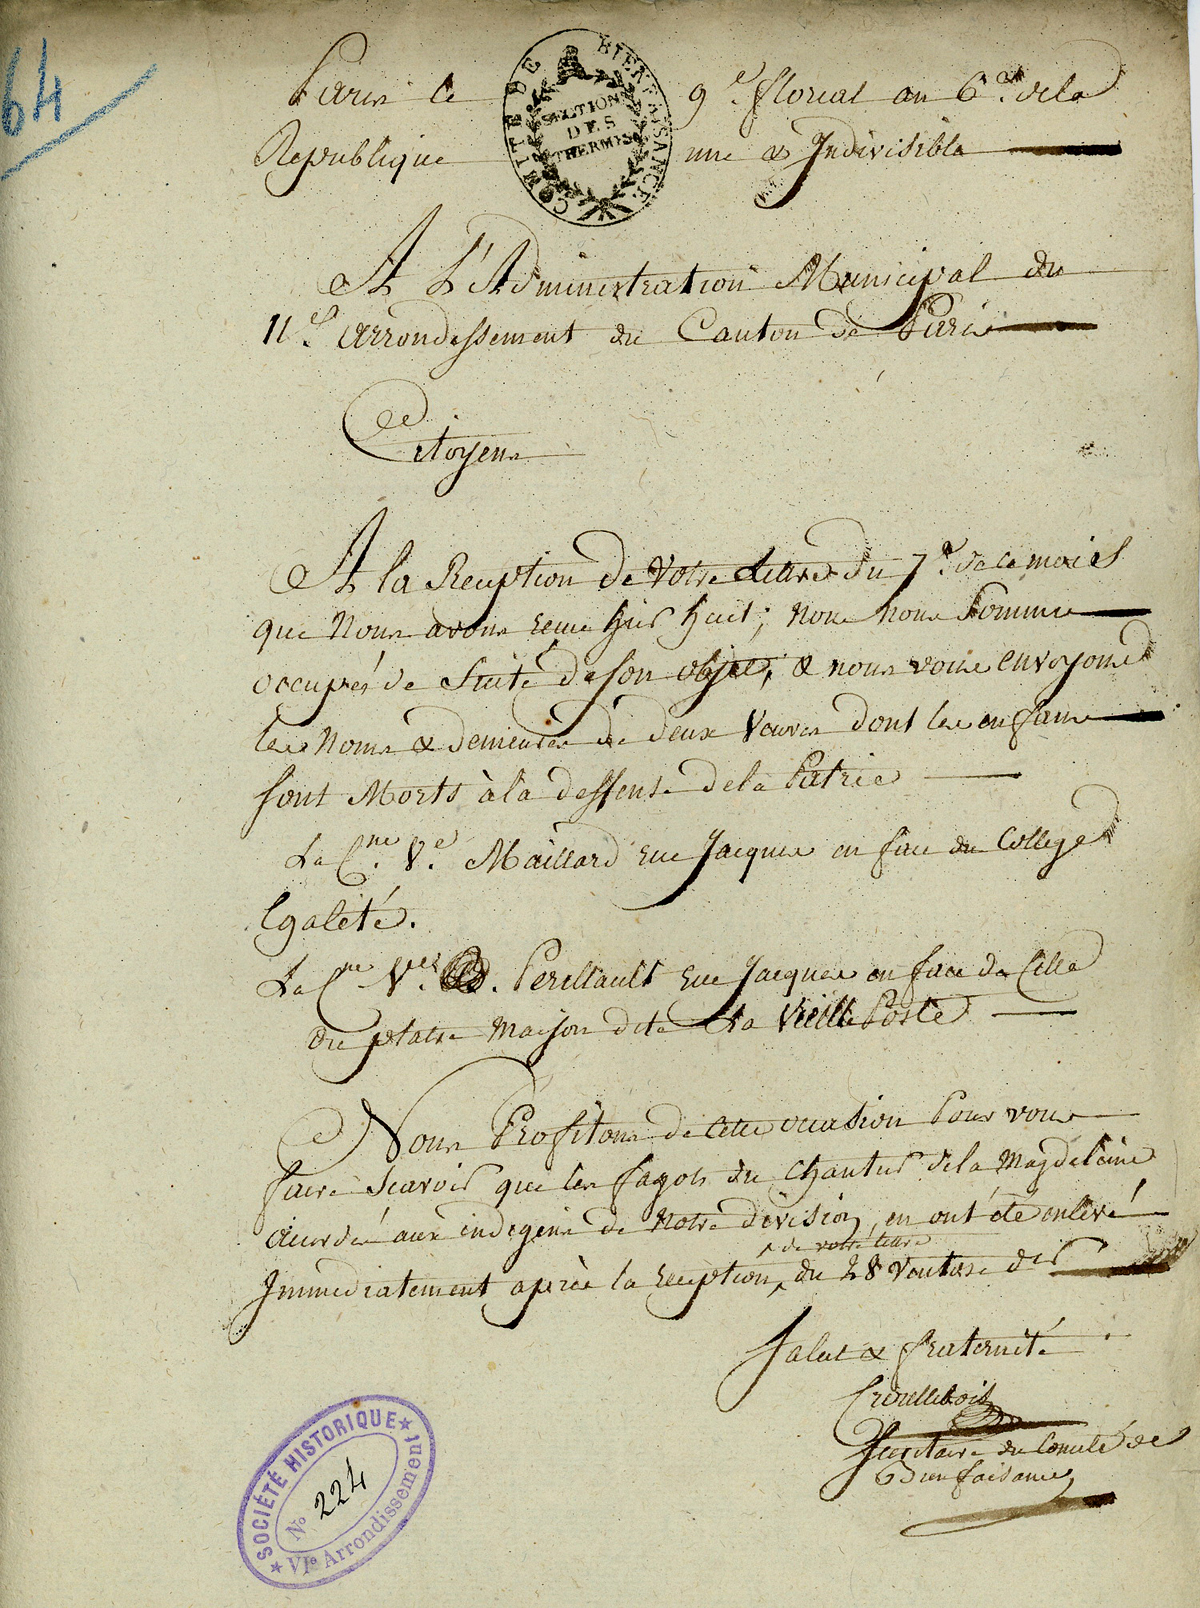 64
Paris le 9e. floreal an 6eme. de la
COMITÉ DE BIENFAISANCE
SECTION
DES
THERMES
Republique une & Indivisible
A L'Administration Municipal du
11e. arrondessement du Canton de Paris
Citoyens
A la Reception de Votre Lettre du 7e. de ce mois
que Nous avons recue hier huit; nous nous Somme
occupés de Suite de son objet, & nous vous envoyons
les Noms & demeures de deux Veuves dont les enfans
sont Morts à la deffense de la Patrie
La Cne. Ve. Maillard rue Jacques en face du College
Egalité.
La Cne Ve. Perillault rue Jacques en face de Celle
du platre Maison dite La Vieille Poste
Nous Profitons de cette occasion Pour vous
faire Scavoir que les fagots du Chantier de la Magdeleine
accordés aux indegens de Notre division, en ont été enlevé
^ de votre lettre
Immediatement après la reception, du 28 Ventose der
Salut & fraternité
Crouillebois
Secretaire du Comité de
Bienfaisance
SOCIÉTÉ HISTORIQUE
No 224
VIe Arrondissement